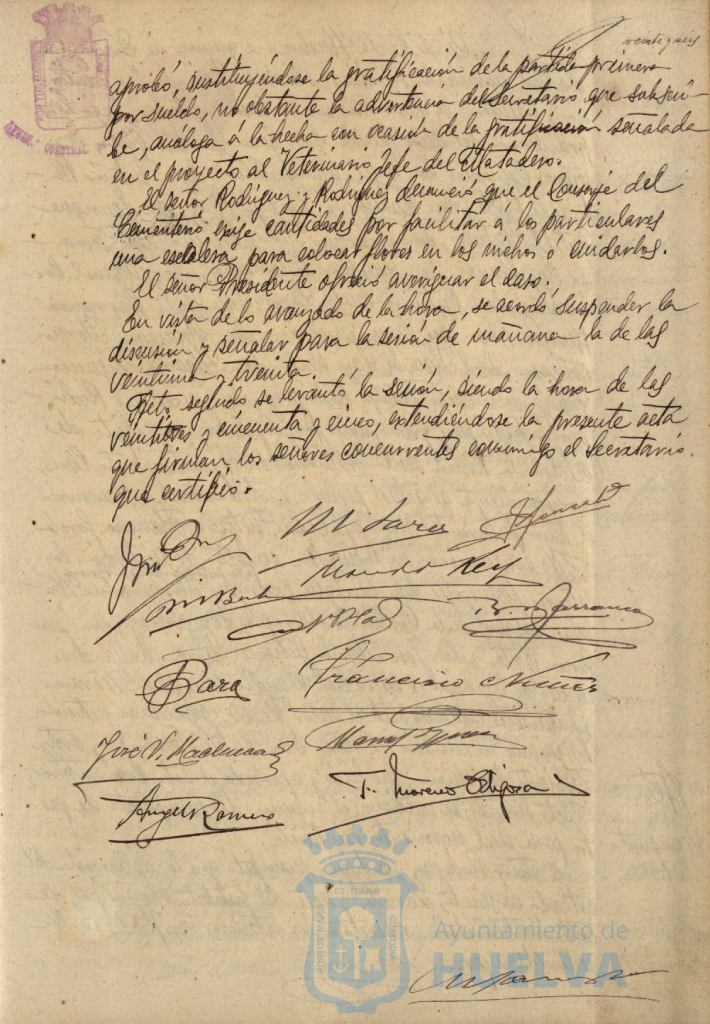 veinte y seis
aprobó, sustituyéndose la gratificación de la partida primera
por sueldo, no obstante la advertencia del Secretario que subscri-
be, análoga á la hecha con ocasión de la gratificación señalada
en el proyecto al Veterinario Jefe del Matadero.
El señor Rodríguez y Rodríguez denunció que el Conserje del
Cementerio exije cantidades por facilitar á los particulares
una escalera para colocar flores en los nichos ó cuidarlos.
El señor Presidente ofreció averiguar el caso.
En vista de lo avanzado de la hora, se acordó suspender la
discusión y señalar para la sesión de mañana la de las
veintiuna y treinta.
Acto seguido se levantó la sesión, siendo la hora de las
veintitres y cincuenta y cinco, extendiéndose la presente acta
que firman los señores concurrentes conmigo el Secretario.
que certifico.
Francisco Núñez
Angel Romero
F. Moreno
PORTUS MARIS
ET TERRÆ
CUSTODIA
Ayuntamiento de
HUELVA